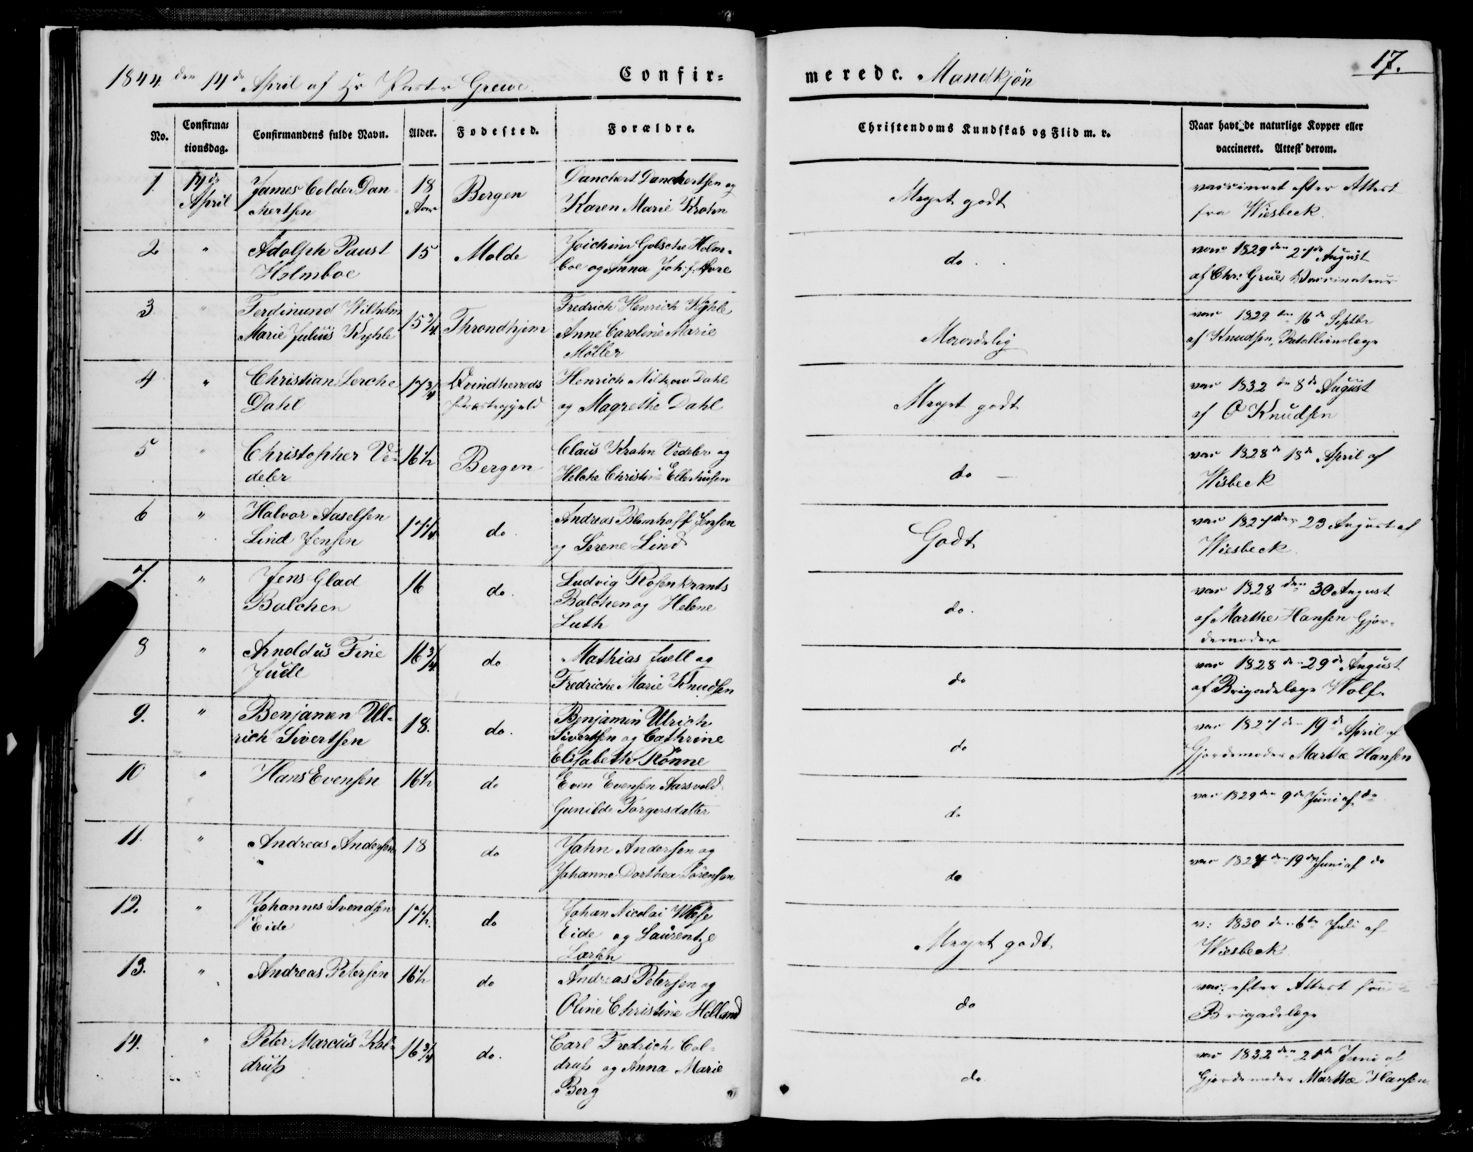 17.
1844 den 14de April af Hr Pastor Greve. Confir= merede. Mandkjøn
No. Confirma=tionsdag. Confirmandens fulde Navn. Alder. Fødested. Forældre. Christendoms Kundskab og Flid m. v. Naar havt de naturlige Kopper eller vaccineret. Attest derom.
1. 14de James Colder Dan- 18 Bergen Danckert Danckertsen og Meget godt vaccineret efter Attest
April kertsen Aar Karen Marie Krohn fra Wiesbeck.
2 " Adolph Paust 15 Molde Joichim Gotsche Holm- do. vac 1829 den 27de August
Holmboe boe og Anna af Chr: Grue Vaccinateur
3 " Ferdinund Wilhelm 15 3/4 Throndhjem Fredrich Henrich Kyhle Moxordelig vac 1829 den 16de Septbr
Marie Julius Kyhle Anne Caroline Marie af Knudsen Batellionslæge
Møller
4 " Christian Lerche 17 3/4 Qvindherreds Henrich Miltzow Dahl Meget godt vac 1832 den 8de August
Dahl Præstegjeld og Magrethe Dahl af O Knudsen
5 " Christopher Ve- 16 1/2 Bergen Claus Krohn Vedeler og do vac 1828 d 18de April af
deler Helche Christine Ellerhusen Wisbeck
6 " Halvor Aaselsen 17 1/4 do. Andreas Blomhoff Jensen Godt vac 1827 den 23 August af
Lind Jensen og Serene Lind Wiesbeck
7. " Jens Glad 16 do. Ludvig Rosenkrants do. vac 1828 den 30 August
Balchen Balchen og Helene af Marthe Hansen Gjor-
Luth demoder
8 " Arnoldus Fine 16 3/4 do Mathias Juell og do vac 1828 d 29de August
Juell Fredriche Marie Knudsen af Brigadelæge Wolf.
9. " Benjamin Ul- 18. do. Benjamin Ulrich do vac 1827 den 19de April af
rich Sivertsen Sivertsen og Cathrine Gjordemoder Marthe Hansen
Elisabeth Rønne
10 " Hans Evensen 16 1/2 do Even Evensen Aarsvold d. vac 1829 den 9de Juni af do
Gunilde Torgersdatter
11. " Andreas Andersen 18 do John Andersen og do vac 1827 den 19de Juni af do
Johanne Dorthea Sørensen
12. " Johannes Svendsen 17 1/2. do Johan Nicolai Wiese Meget godt v: 1830 den 6te Juli af
Eide Eide og Laurentze Wiesbeck
Larsen
13. " Andreas Petersen 16 1/2 do Andreas Petersen og do vac: efter Attest fra
Oline Christine Holland Brigadelæge
14. " Peter Marcus Kal- 16 3/4 do. Carl Fredrich Col- do vac 1832 den 21de Juni af
drup drup og Anna Marie Gjordemoder Marthe Hansen
Berg